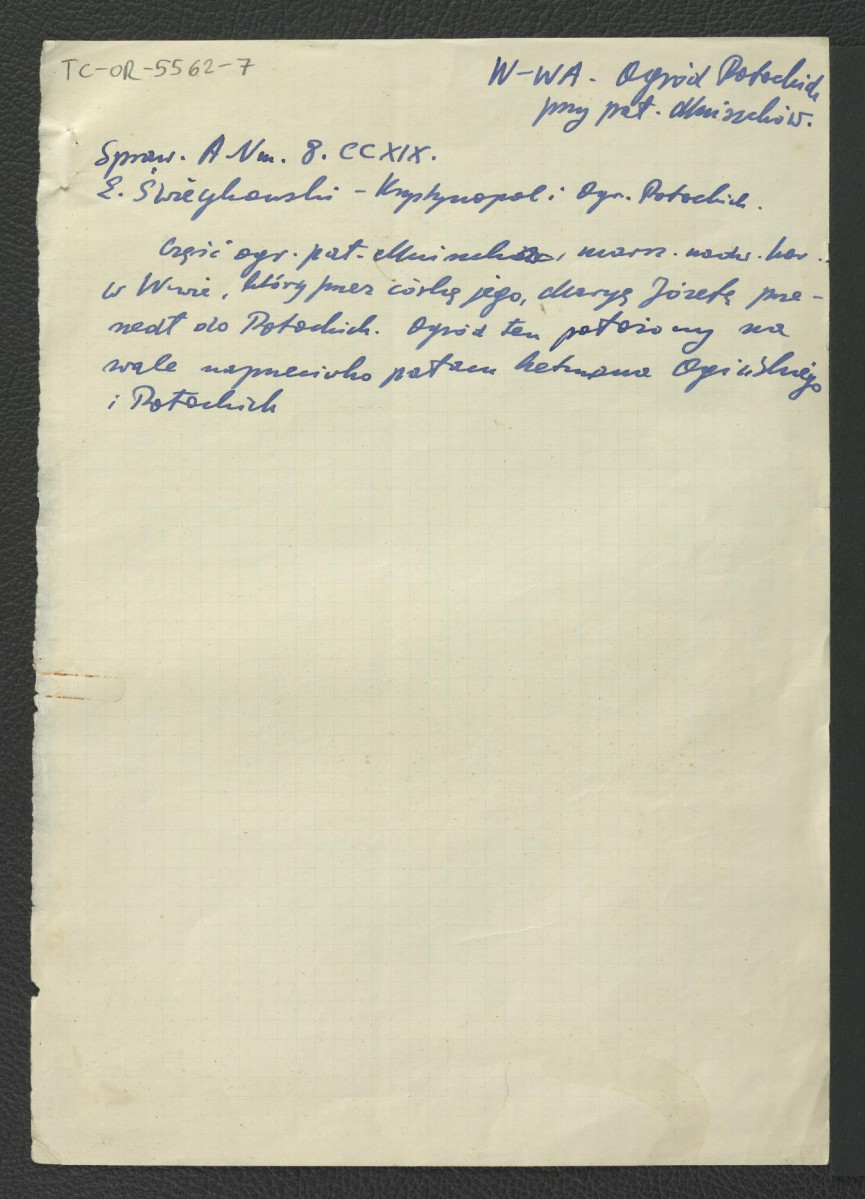 TC-OR-5562-7
W-WA - Ogród Potockich
przy pał. Mniszchów.
Spraw. A Um. 8. CCXIX.
E. Świeykowski - Krystynopol i Ogr. Potockich.
Część ogr. pał. Mniszcha, marsz. nadw. kor.
w W-wie, który przez córkę jego, Maryę Józefę prze-
szedł do Potockich. Ogród ten położony na
wale naprzeciwko pałacu hetmana Ogińskiego
i Potockich